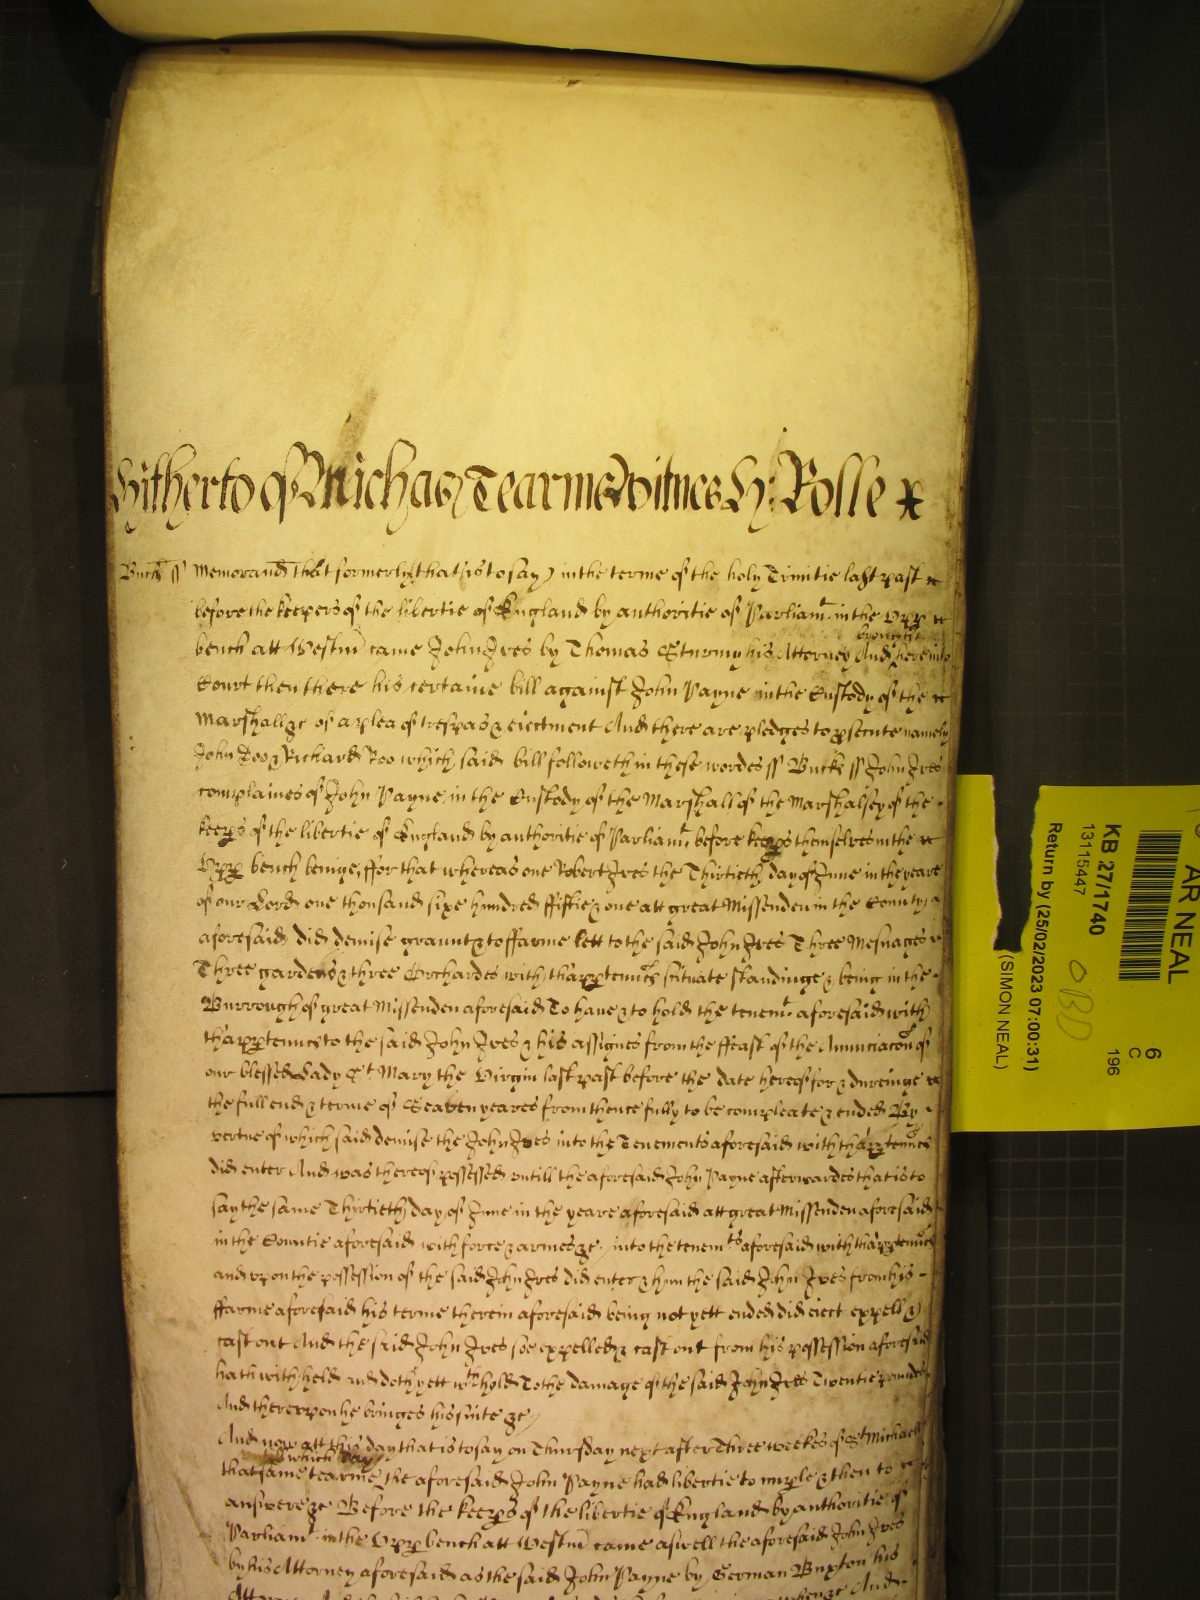 Hitherto of Michas Tearme Witnes H: Rolle
Buck ss Memorand That formerly that is to say) in the terme of the holy Trinitie last past
before the keepers of the libertie of England by authoritie of Parliamt. in the Vpp
brought
bench att Westm came John Ives by Thomas Sturmy his Attorney And here into
Court then there his certaine bill against John Payne in the Custody of the
Marshall &c of a plea of trespas & eiectment And there are pledges to psecute namely
John Doo & Richard Roo which said bill followeth in these wordes ss Bucks ss John Ives
complaines of John Payne in the Custody of the Marshall of the Marshalsey of the
keeps of the libertie of England by authoritie of Parliamt before keeps themselves in the
Vpp bench beinge, ffor that whereas one Robert Ives the Thirtieth day of June in the yeare
of our Lord one thousand sixe hundred ffiftie & one att great Missenden in the County
aforesaid did demise graunt & to ffarme lett to the said John Ives Three Mesuages
Three gardens & three Orchardes with thapptenncs scituate standinge & being in the
Burrough of great Missenden aforesaid To have & to hold the tenemt. aforesaid with
thapptenncs to the said John Ives & his assignes from the ffeast of the Annunciacon of
our blessed Lady St Mary the Virgin last past before the date hereof for & dureinge
the full end & terme of Seaven yeares from thence fully to be compleate & ended By
vertue of which said demise the John Ives into the Tenements aforesaid with thapptenncs
did enter And was thereof possessed vntill the aforesaid John Payne afterwardes that is to
say the same Thirtieth day of June in the yeare aforesaid att great Missenden aforesaid
in the Countie aforesaid with force & armes &c. into the tenemts aforesaid with thapptenncs
and vpon the possession of the said John Ives did enter & him the said John Ives from his
ffarme aforesaid his terme therein aforesaid being not yett ended did eiect expell &
cast out And the said John Ives soe expelled & cast out from his possession aforesaid
hath withheld and doth yett wthhold To the damage of the said John Ives Twentie poundes
And therevpon he bringes his suite &c
And now att this day that is to say on Thursday next after Three weekes of St Michaell
which day
that same tearme the aforesaid John Payne had libertie to imple & then to
answere &c Before the keeps of the libertie of England by authoritie of
Parliamt. in the Vpp bench att Westm came aswell the aforesaid John Ives
by his Attorney aforesaid as the said John Payne by German Buxton his
AR NEAL
6
C
196
KB 27/1740
13115447
Return by (25/02/2023 07:00:31)
(SIMON NEAL)